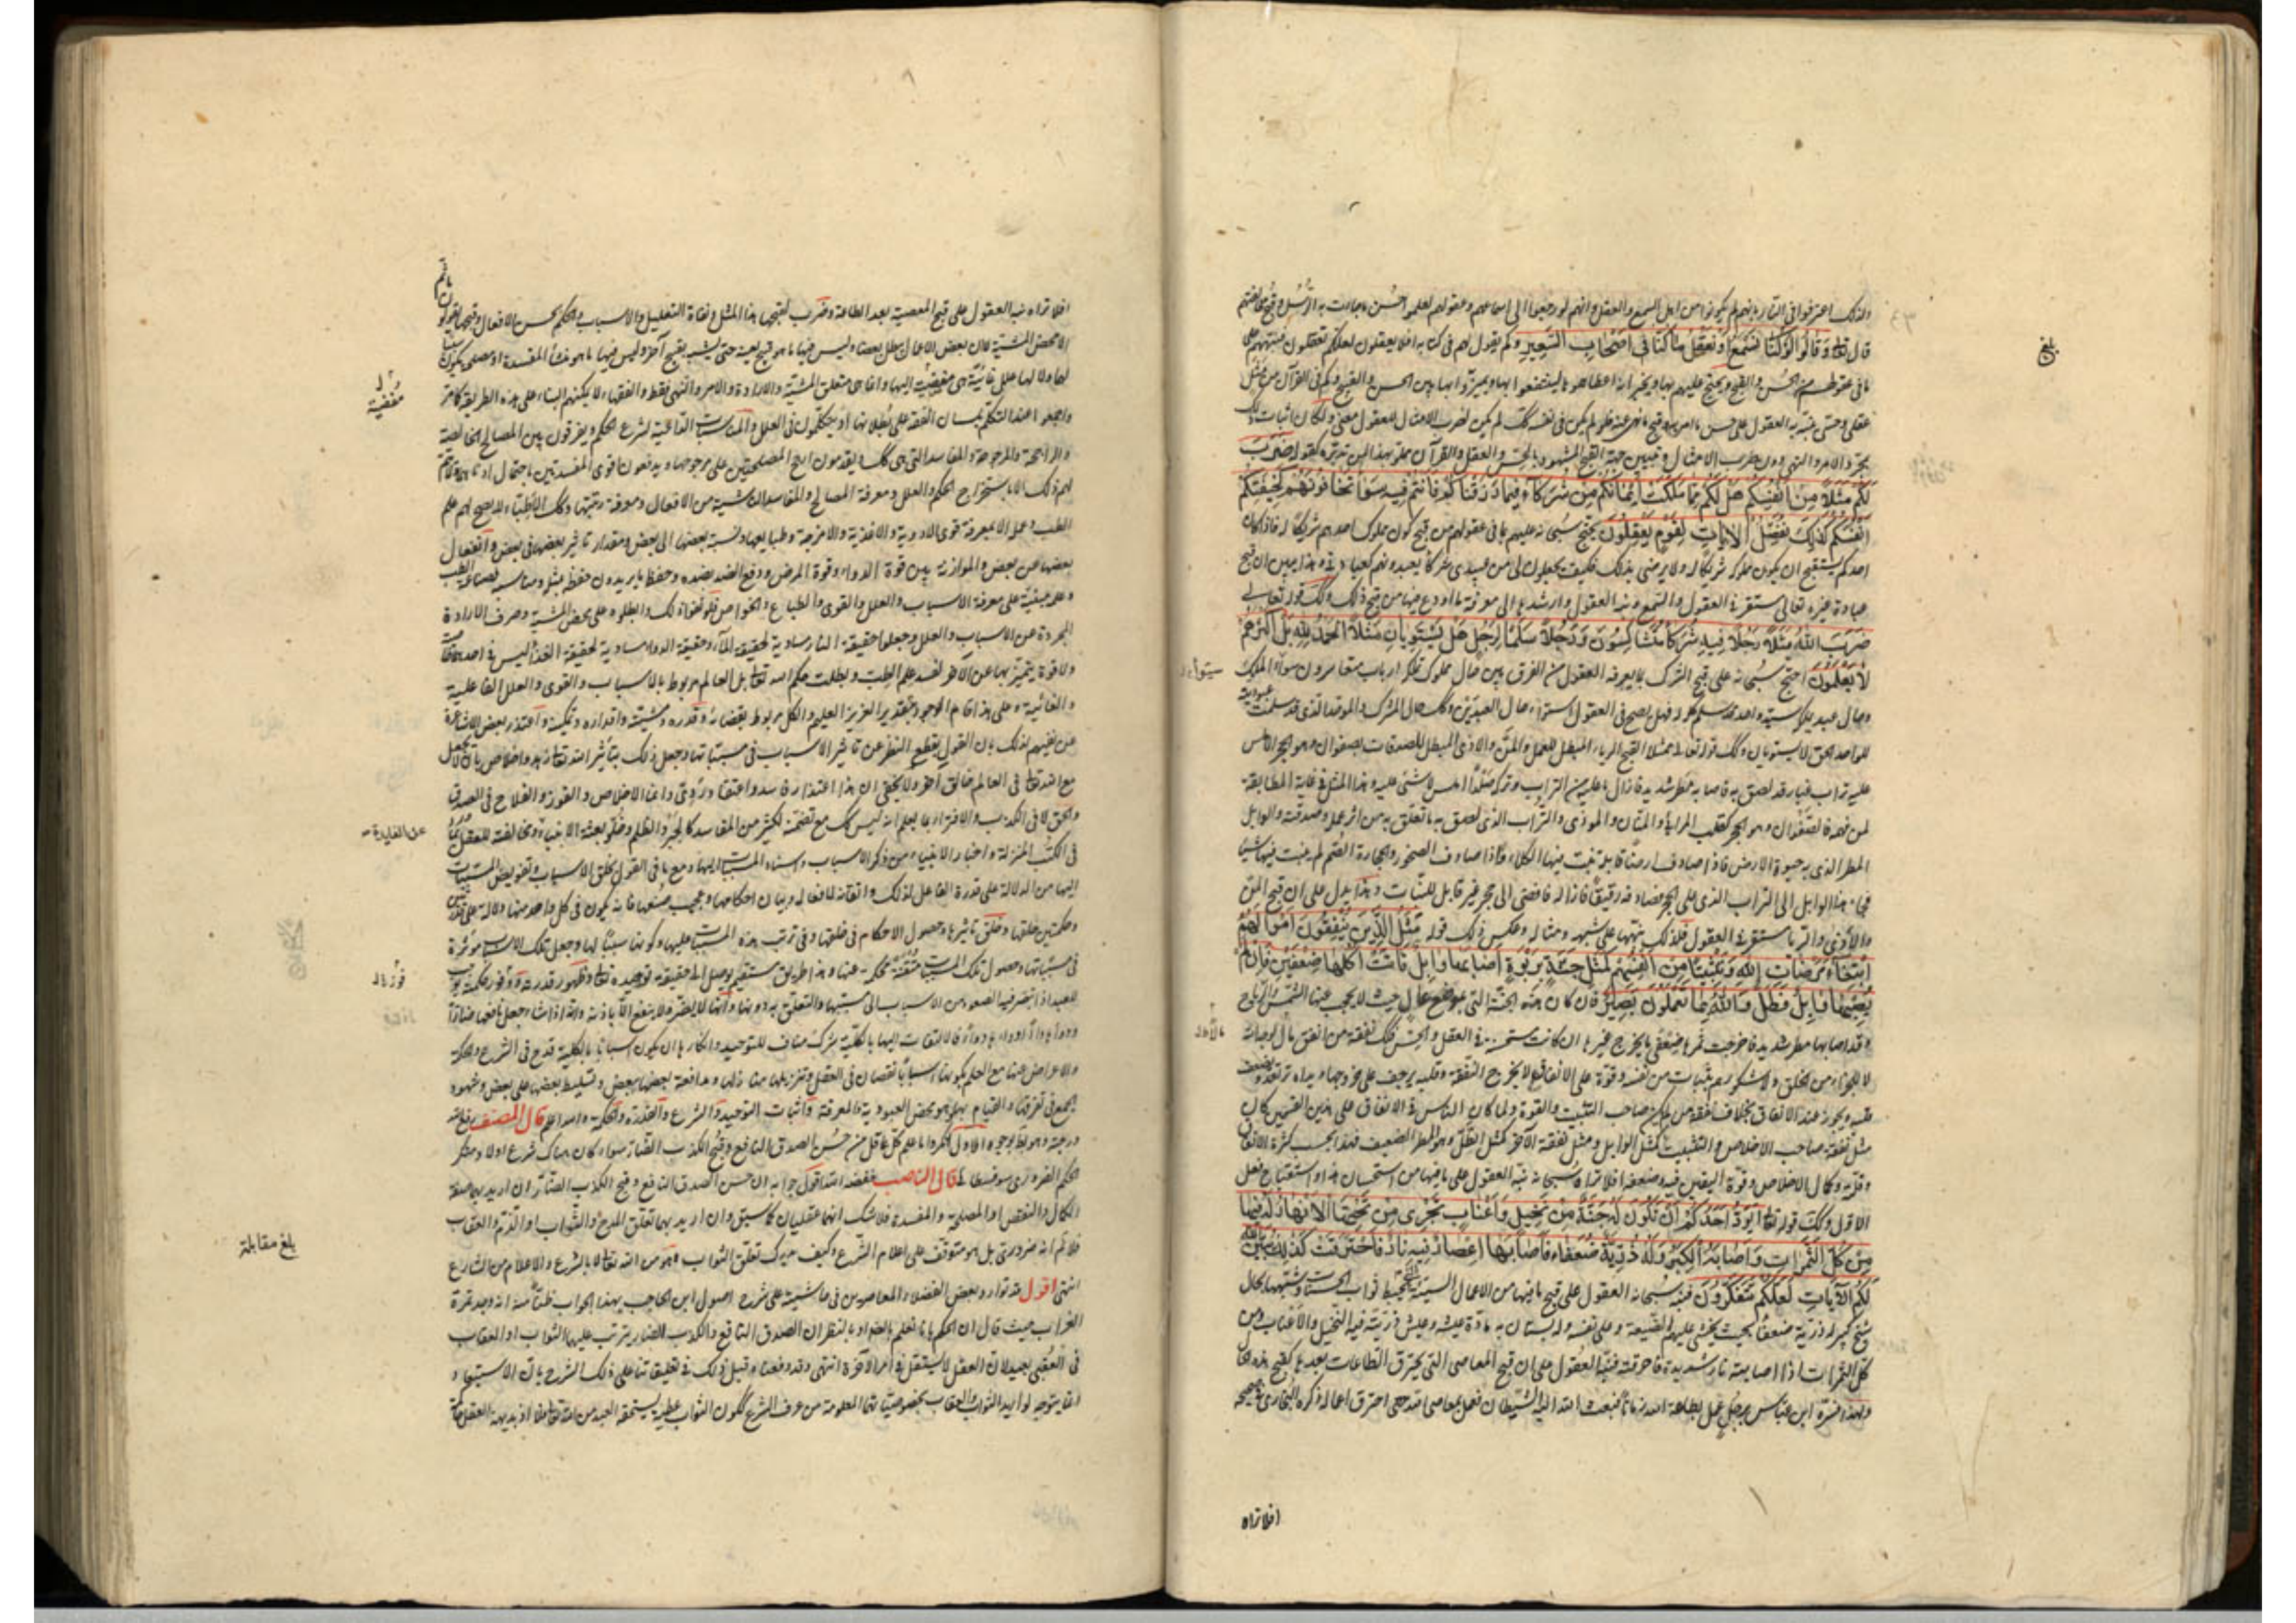 ولذلك اعترفوا في النار بانهم لم يكونوا من اهل السمع والعقل وانهم لو رجعوا الى اسماعهم وعقولهم لعلموا حسن ما جاءت به الرسل وقبح مخالفتهم
قال تعالى وَقَالُوا لَوْ كُنَّا نَسْمَعُ أَوْ نَعْقِلُ مَا كُنَّا فِي أَصْحَابِ السَّعِيرِ وكم يقول لهم في كتابه افلا يعقلون لعلكم تعقلون فنبههم على
ما في عقولهم من الحسن والقبح ويحتج عليهم بها ويخبر انه اعطاهموها لينتفعوا بها ويميزوا بها بين الحسن والقبيح وكم في القرآن من مثل
عقلي وحسي ينبه به العقول على حسن ما امر به وقبح ما نهى عنه فلو لم يكن في نفسه كذلك لم يكن لضرب الامثال للعقول معنى ولكان اثبات ذلك
بمجرد الامر والنهي دون ضرب الامثال وتبيين جهة القبح المشهودة بالحس والعقل والقرآن مملو بهذا لمن تدبره كقوله ضَرَبَ
لَكُمْ مَثَلاً مِنْ أَنْفُسِكُمْ هَلْ لَكُمْ مِمَّا مَلَكَتْ أَيْمَانُكُمْ مِنْ شُرَكَاءَ فِيمَا رَزَقْنَاكُمْ فَأَنْتُمْ فِيهِ سَوَاءٌ تَخَافُونَهُمْ كَخِيفَتِكُمْ
أَنْفُسَكُمْ كَذَلِكَ نُفَصِّلُ الآيَاتِ لِقَوْمٍ يَعْقِلُونَ يحتج سبحانه عليهم بما في عقولهم من قبح كون مملوك احدهم شريكا له فاذا كان
احدكم يستقبح ان يكون مملوكه شريكا له ولا يرضى بذلك فكيف يجعلون لي من عبيدي شركاء يعبدونهم كعبادتي وهذا يبين ان قبح
عبادة غيره تعالى مستقر في العقول والسمع نبه العقول وارشدها الى معرفة ما اودع فيها من قبح ذلك وكذلك قوله تعالى
ضَرَبَ اللهُ مَثَلاً رَجُلاً فِيهِ شُرَكَاءُ مُتَشَاكِسُونَ وَرَجُلاً سَلَمًا لِرَجُلٍ هَلْ يَسْتَوِيَانِ مَثَلاً الْحَمْدُ لِلَّهِ بَلْ أَكْثَرُهُمْ
لاَ يَعْلَمُونَ احتج سبحانه على قبح الشرك بما يعرفه العقول من الفرق بين حال مملوك يملكه ارباب متعاسرون سيئوا الملكة
وحال عبد يملكه سيد واحد قد سلم كله له فهل يصح في العقول استواء حال العبدين وكذلك حال المشرك والموحد الذي قد سلمت عبوديته
للواحد الحق لا يستويان وكذلك قوله تعالى ممثلا لقبح الرياء المبطل للعمل والمن والاذى المبطل للصدقات بصفوان وهو الحجر الاملس
عليه تراب غبار قد لصق به فاصابه مطر شديد فازال ما عليه من التراب وتركه صلدا املس لا شيء عليه وهذا المثل في غاية المطابقة
لمن فهمه فالصفوان وهو الحجر كقلب المرائي والمنان والموذي والتراب الذي لصق به ما تعلق به من اثر عمله وصدقته والوابل
المطر الذي به حيوة الارض فاذا صادف ارضا قابلة نبت فيها الكلاء واذا صادف الصخور والحجارة الصم لم ينبت فيها شيئا
فجاء هذا الوابل الى التراب الذي على الحجر فصادفه رقيقا فازاله فافضى الى حجر غير قابل للنبات وهذا يدل على ان قبح المن
والاذى والرياء مستقر في العقول فلذلك نبهها على شبهه ومثاله وعكس ذلك قوله مَثَلُ الَّذِينَ يُنْفِقُونَ أَمْوَالَهُمُ
ابْتِغَاءَ مَرْضَاتِ اللهِ وَتَثْبِيتًا مِنْ أَنْفُسِهِمْ كَمَثَلِ جَنَّةٍ بِرَبْوَةٍ أَصَابَهَا وَابِلٌ فَآتَتْ أُكُلَهَا ضِعْفَيْنِ فَإِنْ لَمْ
يُصِبْهَا وَابِلٌ فَطَلٌّ وَاللهُ بِمَا تَعْمَلُونَ بَصِيرٌ فان كان هذه الجنة التي بموضع عال حيث لا يحجب عنها الشمس والرياح
وقد اصابها مطر شديد فاخرجت ثمرها ضعفي ما يخرج غيرها ان كانت مستحسنة في العقل والحس فكذلك نفقة من انفق ماله لوجه الله
لا للجزاء من الخلق ولا لشكورهم بثبات من نفسه وقوة على الانفاق لا يخرج النفقة وقلبه يرجف على خروجها ويداه ترتعد ويضعف
قلبه ويخور عند الانفاق بخلاف نفقة من لم يكن صاحب التثبيت والقوة ولما كان الناس في الانفاق على هذين القسمين كان
مثل نفقة صاحب الاخلاص والتثبيت كمثل الوابل ومثل نفقة الآخر كمثل الطل وهو المطر الضعيف فهذا بحسب كثرة الانفاق
وقلته وكمال الاخلاص وقوة اليقين فيه وضعفه افلا تراه سبحانه نبه العقول على ما فيها من استحسان هذا واستقباح فعل
الاول وكذلك قوله تعالى أَيَوَدُّ أَحَدُكُمْ أَنْ تَكُونَ لَهُ جَنَّةٌ مِنْ نَخِيلٍ وَأَعْنَابٍ تَجْرِي مِنْ تَحْتِهَا الأَنْهَارُ لَهُ فِيهَا
مِنْ كُلِّ الثَّمَرَاتِ وَأَصَابَهُ الْكِبَرُ وَلَهُ ذُرِّيَّةٌ ضُعَفَاءُ فَأَصَابَهَا إِعْصَارٌ فِيهِ نَارٌ فَاحْتَرَقَتْ كَذَلِكَ يُبَيِّنُ اللهُ
لَكُمُ الآيَاتِ لَعَلَّكُمْ تَتَفَكَّرُونَ فنبه سبحانه العقول على قبح ما فيها من الاعمال السيئة التي تحبط ثواب الحسنات وشبهها بحال
شيخ كبير له ذرية ضعفاء بحيث يخشى عليهم الضيعة وعلى نفسه وله بستان به مادة عيشه وعيش ذريته فيه النخيل والاعناب ومن
كل الثمرات اذا اصابته نار شديدة فاحرقته فنبه العقول على ان قبح المعاصي التي يحرق الطاعات بعدها كقبح هذه الحال
وبهذا فسره ابن عباس برجل عمل بطاعة الله زمانا فبعث الله اليه الشيطان فعمل بمعاصي الله حتى احرق اعماله ذكره البخاري في صحيحه
افلا تراه
بلغ
افلا تراه نبه العقول على قبح المعصية بعد الطاعة وضرب لقبحها هذا المثل ونفاة التعليل والاسباب والحكم بحسن الافعال وقبحها يقولون
ما ثم
الا محض المشية لا ان بعض الاعمال يبطل بعضا وليس فيها ما هو قبيح بعينه حتى يشبه بقبيح آخر وليس فيها ما هو منشأ المفسدة او مصلحة يكون سببا
لها ولا لها علل غائية هي مفضية اليها وانما هي متعلق المشية والارادة والامر والنهي فقط والفقهاء لا يمكنهم البناء على هذه الطريقة كافة
واجمعوا عند التكلم بلسان الفقه على بطلانها اذ يتكلمون في العلل والمناسبات الداعية لشرع الحكم ويفرقون بين المصالح الخالصة
والراجحة والمرجوحة والمفاسد التي هي كذلك ويقدمون ارجح المصلحتين على مرجوحها ويدفعون اقوى المفسدتين باحتمال ادناهما ولا يتم
لهم ذلك الا باستخراج الحكم والعلل ومعرفة المصالح والمفاسد الناشية من الافعال ومعرفة رتبتها وكذلك الاطباء لا يصح لهم علم
الطب وعمله الا بمعرفة قوى الادوية والاغذية والامزجة وطبايعها ونسبة بعضها الى بعض ومقدار تاثير بعضها في بعض وانفعال
بعضها عن بعض والموازنة بين قوة الدواء وقوة المرض ودفع الضد بضده وحفظ ما يريدون حفظه بمثله ومناسبه فصناعة الطب
وعلمه مبنية على معرفة الاسباب والعلل والقوى والطبايع والخواص فلو نفوا ذلك وابطلوه على محض المشية وصرف الارادة
المجردة عن الاسباب والعلل وجعلوا حقيقة النار مساوية لحقيقة الماء وحقيقة الدواء مساوية لحقيقة الغذاء ليس في احدهما خاصية
ولا قوة يتميز بها عن الآخر لفسد علم الطب وبطلت حكم الله تعالى بل العالم مربوط بالاسباب والقوى والعلل الفاعلية
والغائية وعلى هذا قام الوجود بتقدير العزيز العليم والكل مربوط بقضائه وقدره ومشيته واقداره وتمكينه واعتذر بعض الاشاعرة
عن نفيهم لذلك بان القول بقطع النظر عن تاثير الاسباب في مسبباتها وجعل ذلك بتأثير الله تعالى زهد واخلاص بان لا يجعل
مع الله تعالى في العالم خالق آخر ولا يخفى ان هذا اعتذار فاسد واعتقاد ردي وانما الاخلاص والفوز والفلاح في الصدق
والحق لا في الكذب والافتراء بما يعلم انه ليس كذلك مع تضمنه لكثير من المفاسد كالجبر والظلم وخلو بعثة الانبياء ومخالفته للعقل ولما
في الكتب المنزلة واخبار الانبياء من ذكر الاسباب واسناد المسببات اليها ومع ما في القول بخلق الاسباب وتفويض المسببات
اليها من الدلالة على قدرة الفاعل لذلك واتقانه لافعاله وبيان احكامها وعجيب صنعها فانه يكون في كل واحد منها دلالة على قدرتين
وحكمتين خلقها وخلق تاثيرها وحصول الاحكام في خلقها وفي ترتب هذه المسببات عليها وكونها سببا لها وجعل تلك الاسباب موثرة
في مسبباتها وحصول تلك المسببات متقنة محكمة عنها وهذا طريق مستقيم يوصل الى حقيقة توحيده تعالى وظهور قدرته ووفور حكمته
للعبد اذا تبصر فيها الصعود من الاسباب الى مسببها والتعلق به دونها وانها لا يضر ولا ينفع الا باذنه وانه اذا شاء جعل نافعها ضارا
ودواءها داء وداءها دواء فالالتفات اليها بالكلية شرك مناف للتوحيد وانكارها ان يكون اسبابا بالكلية قدح في الشرع والحكمة
والاعراض عنها مع العلم بكونها اسبابا نقصان في العقل وتنزيلها منازلها ومدافعة بعضها ببعض وتسليط بعضها على بعض وشهود
الجمع في تفرقها والقيام بها هو محض العبودية والمعرفة واثبات التوحيد والشرع والقدرة والحكمة والله اعلم قال المصنف رفع الله
درجته وهو بط بوجوه الاول انكروا ما علم كل عاقل من حسن الصدق النافع وقبح الكذب الضار سواء كان هناك شرع اولا ومنكر
الحكم الضروري سوفسطائي قال الناصب خفضه الله اقول جوابه ان حسن الصدق النافع وقبح الكذب الضار ان اريد بهما صفة
الكمال والنقص او المصلحة والمفسدة فلا شك انهما عقليان كما سبق وان اريد بهما تعلق المدح والثواب او الذم والعقاب
فلا نم انه ضروري بل هو متوقف على اعلام الشرع وكيف يدرك تعلق الثواب وهو من الله تعالى الا بالشرع والاعلام من الشارع
انتهى اقول قد توارد بعض الفضلاء المعاصرين في حاشيته على شرح اصول ابن الحاجب بهذا الجواب ظنا منه انه وجد تمرة
الغراب حيث قال ان الحكم بانا نعلم بالضرورة بالنظر ان الصدق النافع والكذب الضار يترتب عليهما الثواب او العقاب
في العقبى بعيد لان العقل لا يستقل في امر الآخرة انتهى وقد دفعناه قبل ذلك في تعليقاتنا على ذلك الشرح بان الاستبعاد
انما يتوجه لو اريد الثواب والعقاب بخصوصياتهما المعلومة من عرف الشرع ككون الثواب عطية يستحقه العبد من الله تعالى
مفضية
عن الفايدة
بلغ مقابلة